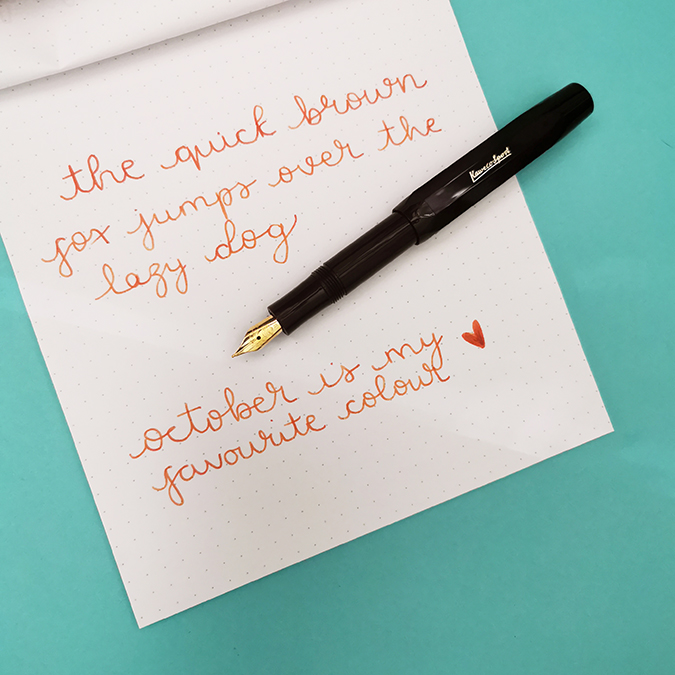 the quick brown
fox jumps over the
lazy dog
Kaweco Sport
october is my
favourite colour